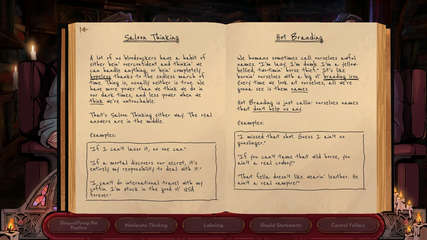 Saloon Thinking
A lot of us bloodsuckers have a habit of
either bein' overconfident and thinkin' we
can handle anything, or bein' completely
hopeless thanks to the endless march of
time. Thing is, usually neither is true. We
have more power than we think we do in
our dark times, and less power when we
think we're untouchable.
That's Saloon Thinking either way. The real
answers are in the middle.
Examples:
"If I can't lasso it, no one can."
"If a mortal discovers our secret, it's
entirely my responsibility to deal with it."
"I can't do international travel with my
coffin. I'm stuck in the good ol' USA
forever."
Hot Branding
We humans sometimes call ourselves awful
names. I'm lazy, I'm dumb, I'm a yellow-
bellied, two-timin' horse thief. It's like
burnin' ourselves with a big ol' branding iron
every time we look at ourselves, all we're
gonna see is them names
Hot Branding is just callin' ourselves names
that don't help us any.
Examples:
"I missed that shot. Guess I ain't no
gunslinger."
"If you can't tame that wild horse, you
ain't a real cowboy."
"That fella doesn't like wearin' leather. He
ain't a real vampire."
Moderate Thinking
Labeling
Should Statements
Control Fallacy